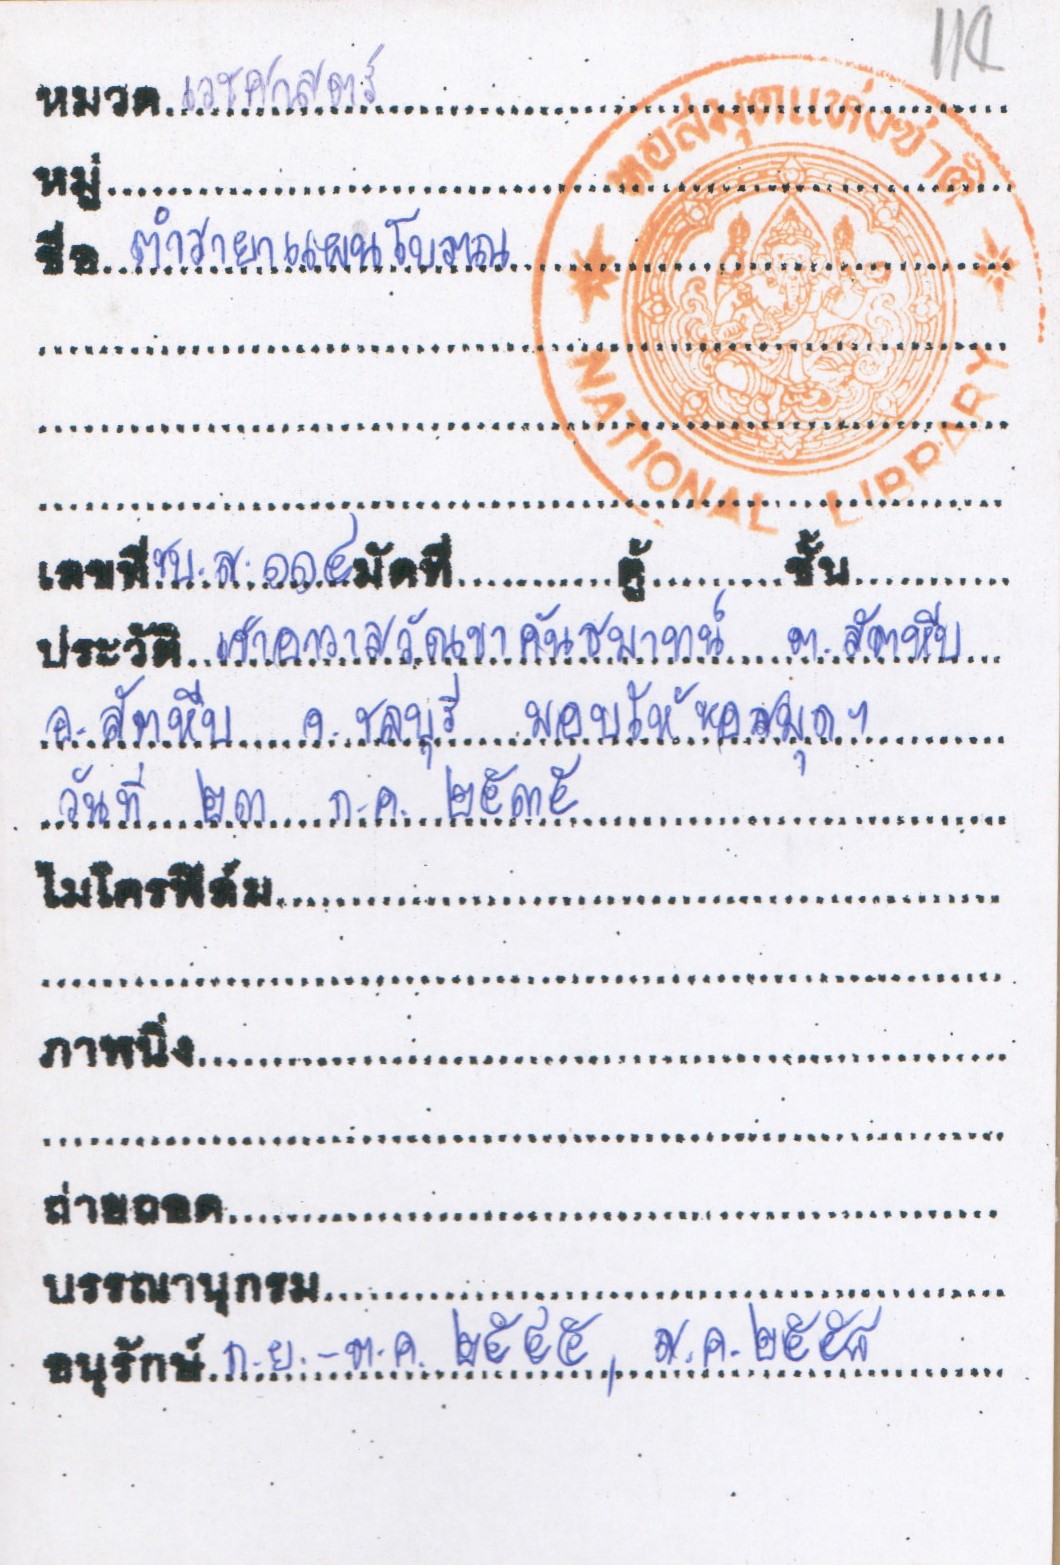 หมวด เวชศาสตร์
หมู่
ชื่อ ตำรายาแผนโบราณ
หอสมุดแห่งชาติ
NATIONAL LIBRARY
เลขที่ ชบ.ส. ๑๑๔ มัดที่ ตู้ ชั้น
ประวัติ เจ้าอาวาสวัดเขาคันธมาทน์ ต.สัตหีบ
อ.สัตหีบ จ.ชลบุรี มอบให้หอสมุดฯ
วันที่ ๒๓ ก.ค. ๒๕๓๕
ไมโครฟิล์ม
ภาพนิ่ง
ถ่ายถอด
บรรณานุกรม
อนุรักษ์ ก.ย.-ต.ค. ๒๕๔๕, ส.ค. ๒๕๕๘